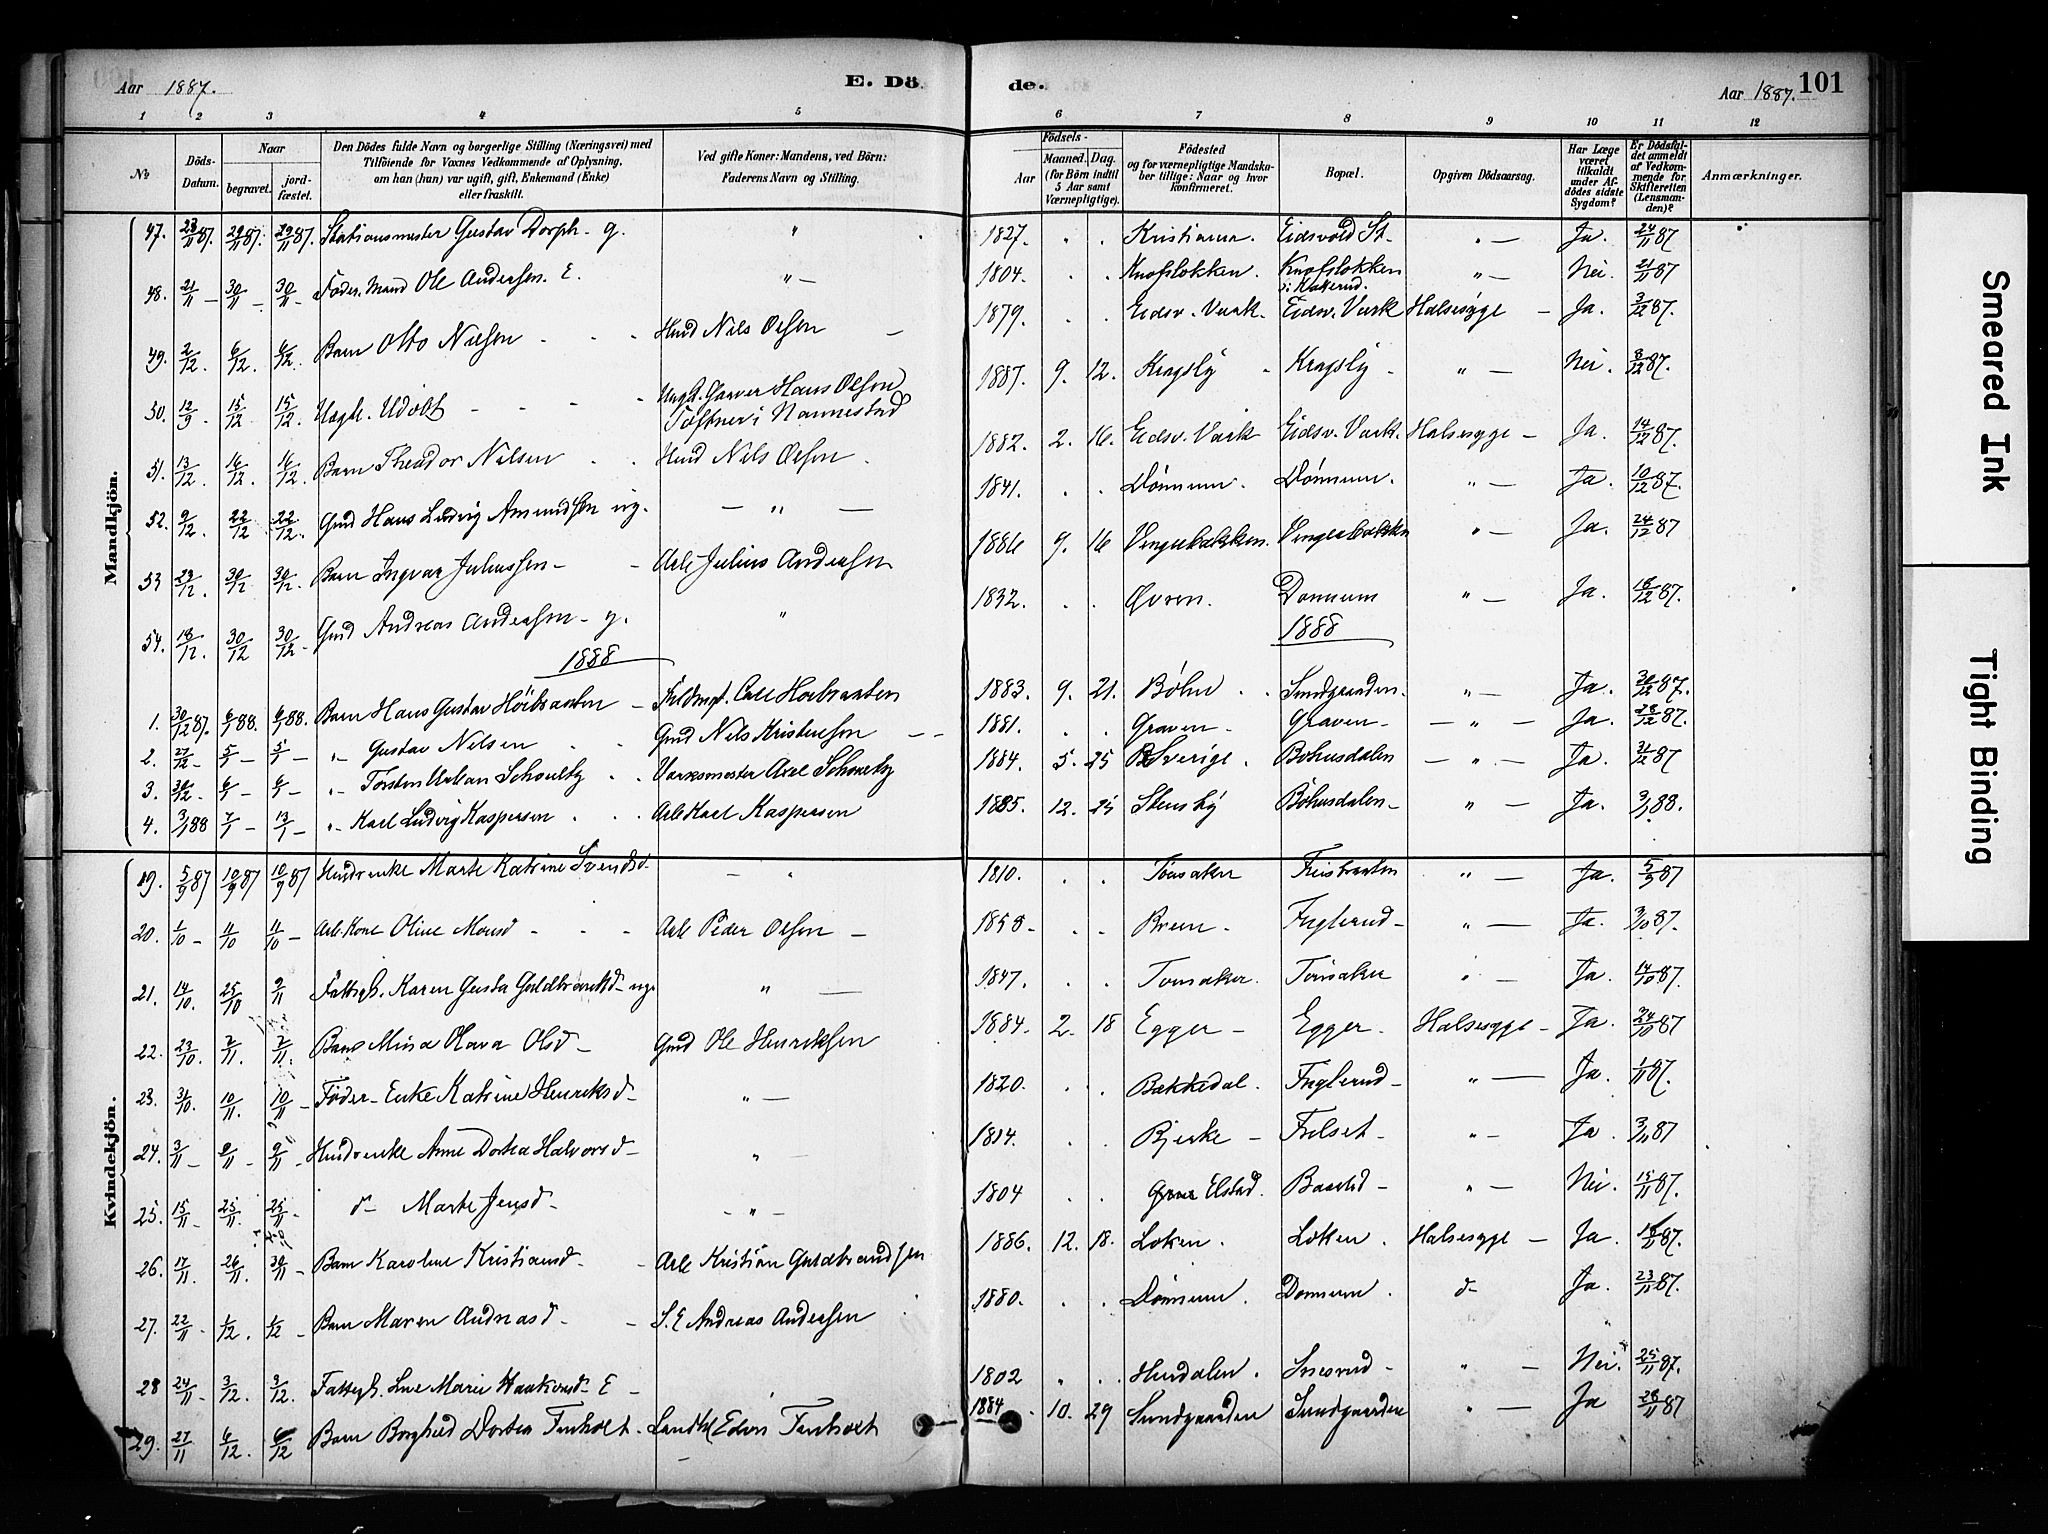 Aar 1887.
E. Dö
de.
Aar 1887.
101
1 2 3 4 5 6 7 8 9 10 11 12
No
Döds-
Datum.
Naar
begravet.
jord-
fæstet.
Den Dödes fulde Navn og borgerlige Stilling (Næringsvei) med
Tilföiende for Voxnes Vedkommende af Oplysning,
om han (hun) var ugift, gift, Enkemand (Enke)
eller fraskilt.
Ved gifte Koner: Mandens, ved Börn:
Faderens Navn og Stilling.
Aar
Födsels-
Maaned. Dag.
(for Börn indtil
5 Aar samt
Værnepligtige).
Födested
og for værnepligtige Mandska-
ber tillige: Naar og hvor
konfirmeret.
Bopæl.
Opgiven Dödsaarsag.
Har Læge
været
tilkaldt
under Af-
dödes sidste
Sygdom?
Er Dödsfal-
det anmeldt
af Vedkom-
mende for
Skifteretten
(Lensman-
den)?
Anmærkninger.
Mandkjön.
47. 23/11 87. 29/11 87. 29/11 87. Stationsmester Gustav Dorph - g. " 1827. Kristiania. Eidsvold St. " — Ja. 24/11 87
48. 21/11 — 30/11 — 30/11 — Föder. Mand Ole Andersen. E. " — 1804. Knofslokken. Knofslokken " — Nei. 21/11 87
49. 2/12. 6/12. 6/12. Barn Otto Nilsen Husd Nils Olsen — 1879. Eidsv. Værk. Eidsv. Værk Halsesyge — Ja. 3/12 87.
50. 12/9. 15/12 15/12. Uægte. Udöbt Ungk. Garver Hans Olsen
Toftner i Nannestad 1887. 9. 12. Kragsby Kragsby " — Nei. 8/12 87.
51. 13/12. 16/12. 16/12. Barn Theodor Nilsen Husd Nils Olsen. 1882. 2. 16. Eidsv. Værk Eidsv. Værk. Halsesyge — Ja. 14/12 87.
52. 9/12. 22/12 22/12. Gmd Hans Ludvig Amundsen ug. — " — 1841. Dönnum. Dönnum. " — Ja. 10/12 87.
53 23/12. 30/12 30/12. Barn Ingvar Juliussen — Arb Julius Andersen 1886 9. 16 " — Ja. 24/12 87
54. 18/12. 30/12 30/12. Gmd Andreas Andersen — g. " 1832. Ovren. Donnum " — Ja. 18/12 87.
1888
1888
1. 30/12 87. 6/1 88. 6/1 88. Barn Hans Gustav Höibraaten — Carl Höibraaten 1883. 9. 21. Böhn Sundgaarden. " — Ja. 30/12 87.
2. 27/12 — 5/1 — 5/1 — " — Gustav Nilsen Gmd Nils Kristensen — 1881. Graven. Graven — — " — Ja. 28/12 87.
3. 30/12 — 6/1 — 6/1 — " Torsten Urban Schoulty Værksmester Axel Schoulty 1884. 5. 25 Sverige. Bohusdalen — " — Ja. 31/12 87
4. 3/1 88 7/1 — 13/1 — " — Karl Ludvig Kaspersen Arb Karl Kaspersen 1885. 12. 25 Stensby Böhusdalen — " — Ja. 3/1 88.
Kvindekjön.
19. 5/9 87 10/9 87 10/9 87 Husdrenke Marte Katrine Svendsd. — " 1810. Tönsaker " — Ja. 5/9 87
20. 1/10 — 11/10 11/10 — Arb. Kone Oline Monsd Arb Peder Olsen — Breen. Fuglerud — " — Ja. 3/10 87.
21. 14/10 25/10 9/11 Fattigl. Karen Gusta Guldbrandsd — ug. " — 1847. Tonsaker. Tönsaker " — Ja. 14/10 87.
22. 23/10. 2/11. 2/11. Barn Mina Olava Olsd — Gmd Ole Henriksen 1884. 2. 18 Egger — Egger. Halsesyge — Ja. 24/10 87
23. 31/10 10/11. 10/11 — Föder- Enke Katrine Henriksd — " — 1820. Bakkedal. Fuglerud — " — Ja. 1/11 87.
24. 3/11 — 9/11 — 9/11 — Husdrenke Anne Dortea Halvorsd — " — 1814. Bjerke — Frilset — " — Ja 3/11 87
25. 15/11 — 25/11. 25/11 — d — Marte Jensd — — " — 1804 Elstad. — " — Nei. 15/11 87.
26. 17/11. 26/11. 30/11 — Barn Karoline Kristiansd — Arb Kristian Guldbrandsen 1886. 12. 18. Loken. Loken. Halsesyge — Ja. 87.
27. 22/11 — 1/12. 1/12 — Barn Maren Andreasd — S. E Andreas Andersen 1880. Dönnum. Donnum. d — Ja. 23/11 87.
28 24/11 — 3/12. 3/12. Fattigl. Line Marie Haakonsd — E — 1802 Hurdalen. " — Nei. 25/11 87.
29. 27/11 6/12. 6/12 Barn Borghild Dortea Fenholt. Landhl Edvin Fenholt 1884 10. 29 Sundgaarden Sundgaarden " — Ja 28/11 87
Smeared Ink
Tight Binding